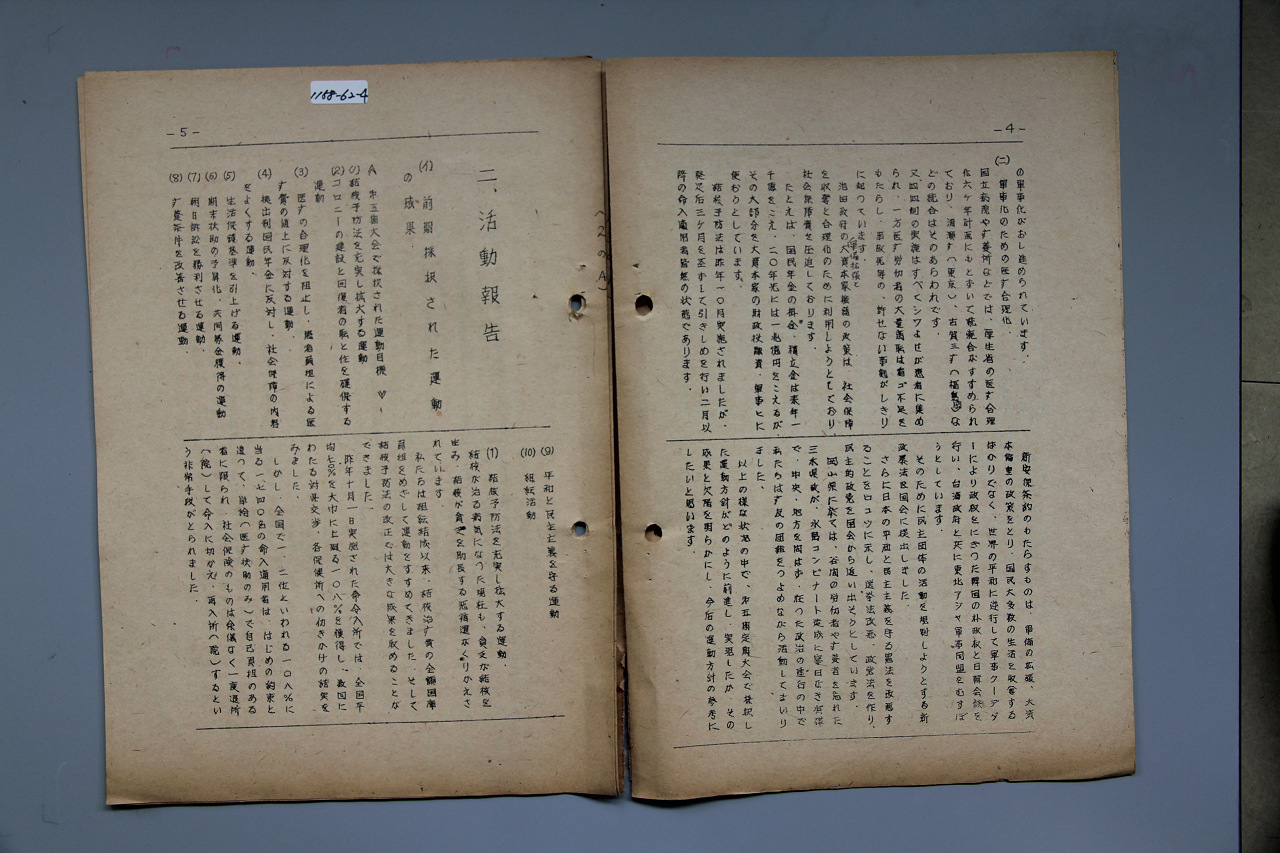 1168-62-4
-4-
の軍事化がおし進められています。
(二) 軍事化のための医す合理化。
国立病院やす養所などでは、厚生省の医す合理
化六ヶ年計画にもとずいて統廃合がすすめられ
ており、清瀬す(東京)、古賀三す(福岡)な
どの統合はそのあらわれです。
又四四制の実施はすべてシワよせが患者に集め
られ、一方医す労働者の大量首転は看ゴ不足を
もたらし、事故死等の、許せない事態がしきり
に起っています。
池田政府の大資本家擁護の政策は、社会保障
軍備拡張と
を収奪と合理化のために利用しようとしており
社会保障費を圧迫しております。
たとえば、国民年金の掛金、積立金は来年一
千億をこえ、二〇年先には一兆億円をこえるが、
その大部分を大資本家の財政投融資、軍事ヒに
使おうとしています。
結核予防法は昨年一〇月実施されましたが、
発足后三ヶ月を至ずして引きしめを行い二月以
降の命入適用者皆無の状態であります。
新安保条約のもたらすものは、軍備の拡張、大資
本偏重の政策をとり、国民大多数の生活を収奪する
ばかりでなく、世界の平和に逆行して軍事クーデタ
ーにより政权をにぎつた韓国の朴政权と日韓会談を
行い、台湾政府と共に東北アジヤ軍事同盟をむすぼ
うとしています。
そのために民主団体の活動を規制しようとする新
政暴法を国会に提出しました。
さらに日本の平和と民主主義を守る憲法を改悪す
ることをロコツに示し、選挙法改悪、政党法を作り、
民主的政党を国会から追い出そうとしています。
岡山県に於ては、谷間の労働者やす養者を忘れた
三木県政が、水島コンビナート造成に寧日なき有様
で、中央、地方を問はず、狂つた政治の進行の中で
私たちはす友の団結をつよめながら活動してまいり
ました。
以上の様な状況の中で、オ五回定期大会で採択し
た運動方針がどのように前進し、実現したか、その
成果と欠陥を明らかにし、今后の運動方針の参考に
したいと思います。
-5-
(2のA)
二、活動報告
(イ) 前期採択された運動
の成果。
A オ五回大会で採択された運動目標
(1) 結核予防法を充実し拡大する運動
(2) コロニーの建設と回復者の転と住を確保する
運動
(3) 医すの合理化を阻止し、患者負担による医
す費の値上に反対する運動。
(4) 拠出制国民年金に反対し、社会保障の内容
をよくする運動。
(5) 生活保護基準を引上げる運動。
(6) 期末扶助の予算化、共同募金獲得の運動
(7) 朝日訴訟を勝利させる運動。
(8) す養条件を改善させる運動。
(9) 平和と民主主義を守る運動
(10) 組織活動
(1) 結核予防法を充実し拡大する運動。
結核が治る病気になつた現在も、貧乏が結核を
生み、結核が貧乏を助長する悪循還がくりかえさ
れています。
私たちは組織結成以来、結核治す費の全額国庫
負担をめざして運動をすすめてきました。そして
結核予防法の改正では大きな成果を収めることな
できました。
昨年十月一日実施された命令入所では、全国平
均七〇%を大巾に上廻る一〇八%を獲得し、数回に
わたる対県交渉、各保健所への仂きかけの結実を
みました。
しかし、全国で一、二位といわれる一〇八%に
当る一七四〇名の命入適用者は、はじめの約束と
違つて、単給(医す扶助のみ)で自己負担のある
者に限られ、社会保険のものは余儀なく一度退所
(院)して命入に切かえ、再入所(院)するとい
う非常手段がとられました。